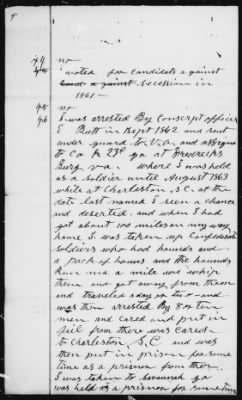 9
44 no
voted for candidate against
secession in
1861 -
45 no
46 I was arrested By Conscript officer
E Britt in Sept 1862 and sent
under guard to V.a. and assigned
to Co K 27th ga at Fredericks
Burg va. where I was held
as a soldier until August 1863
while at Charleston S.C. at the
date last named I seen a chance
and deserted. and when I had
got about 100 miles on my way
home I was taken up Confederate
soldiers who had hounds and
a pack of houns and the hounds
run me a mile and whip
them and got away from them
and traveled a day or two and
was then arrested By 8 or ten
men and caried and put in
jail from there was caried
to Charleston S.C and was
then put in prison for some
time as a prison from ther
I was taken to Savanah ga
was held as a prison for some time